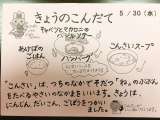 きょうのこんだて 5/30(水)
キャベツとマカロニの
ペペロンソテー
あけぼの
ごはん
ハンバーグ
こんさいスープ
「こんさい」は、つちのなかでそだつ「ね」のぶぶん
をたべるやさいのなかまをいいます。きょうは、
にんじん、だいこん、ごぼうをつかいました。